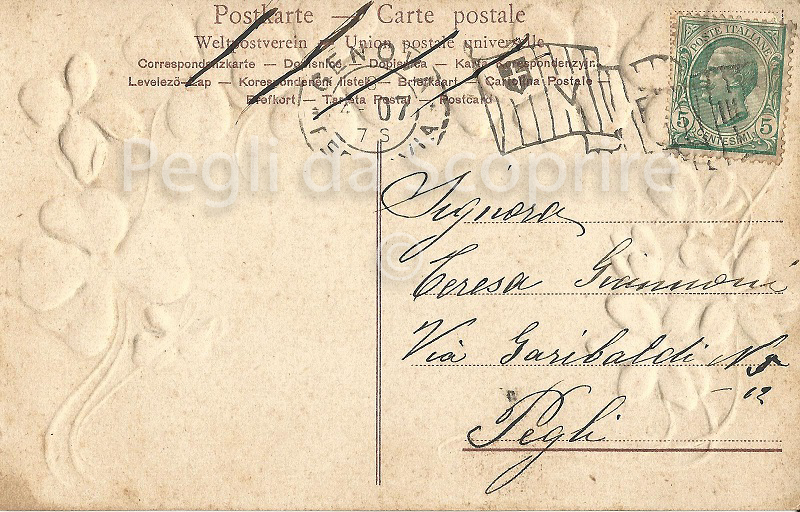 Postkarte — Carte postale
Weltpostverein — Union postale universelle
Correspondenzkarte — Dopisnice — Dopisnica — Karta korespondenzyjna
Levelező-Lap — Korespondenční lístek — Briefkaart — Cartolina Postale
Brefkort — Tarjeta Postal — Postcard
GENOVA
07
7 S
FERROVIA
POSTE ITALIANE
5 CENTESIMI 5
Pegli da Scoprire
©
Signora
Teresa Giannoni
Via Garibaldi N
12
Pegli